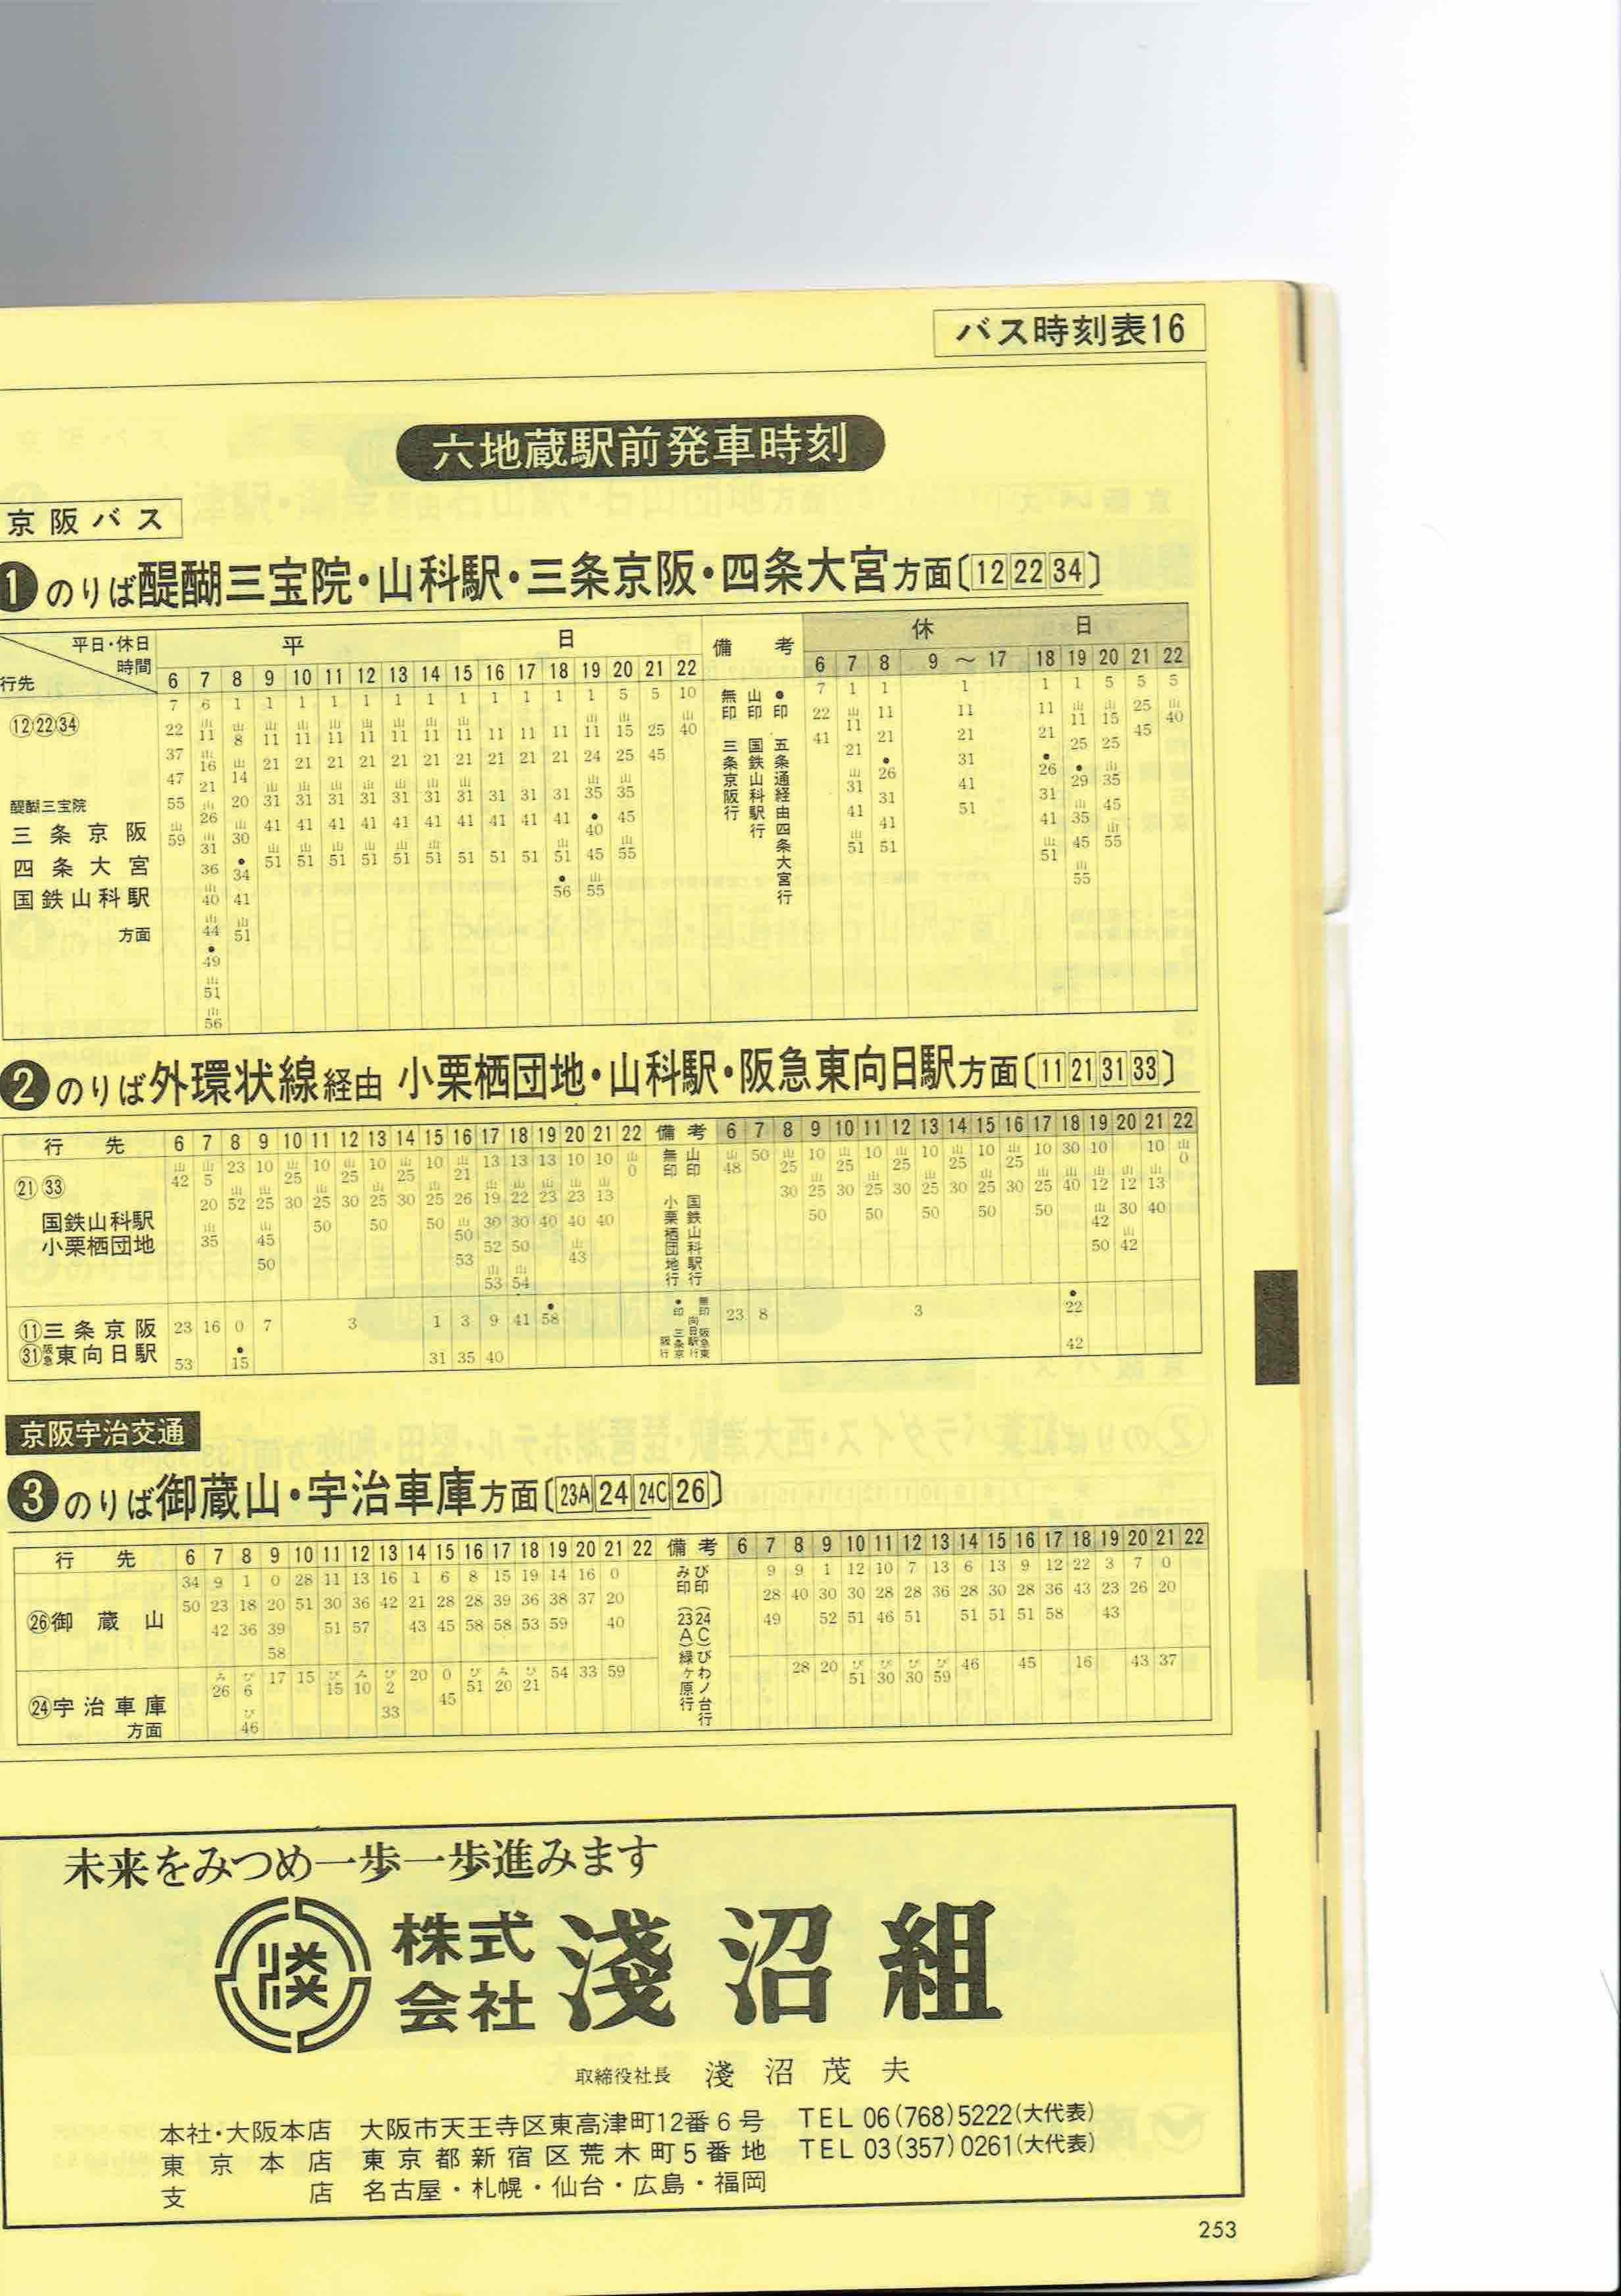 バス時刻表16
六地蔵駅前発車時刻
京阪バス
❶のりば醍醐三宝院・山科駅・三条京阪・四条大宮方面〔12 22 34〕
平日・休日 時間 行先 平日 備考 休日
6 7 8 9 10 11 12 13 14 15 16 17 18 19 20 21 22 6 7 8 9～17 18 19 20 21 22
⑫㉒㉞
7 6 1 1 1 1 1 1 1 1 1 1 1 1 5 5 10 7 1 1 1 1 1 5 5 5
22 山11 山8 山11 山11 山11 山11 山11 山11 山11 11 11 11 山11 山15 25 山40 22 山11 11 11 11 山11 山15 25 山40
37 山16 山14 21 21 21 21 21 21 21 21 21 21 24 25 45 41 21 21 21 21 25 25 45
47 21 20 山31 山31 山31 山31 山31 山31 山31 31 31 31 山35 山35 山31 •26 31 •26 •29 山35
55 山26 山30 41 41 41 41 41 41 41 41 41 41 •40 45 41 31 41 31 山35 45
山59 山31 •34 山51 山51 山51 山51 山51 山51 山51 51 51 山51 45 山55 山51 41 51 41 45 山55
36 41 •56 山55 51 山51 山55
山40 山51
山44
•49
山51
山56
醍醐三宝院
三条京阪
四条大宮
国鉄山科駅
方面
無印 三条京阪行
山印 国鉄山科駅行
•印 五条通経由四条大宮行
❷のりば外環状線経由 小栗栖団地・山科駅・阪急東向日駅方面〔11 21 31 33〕
行先 6 7 8 9 10 11 12 13 14 15 16 17 18 19 20 21 22 備考 6 7 8 9 10 11 12 13 14 15 16 17 18 19 20 21 22
㉑㉝
国鉄山科駅
小栗栖団地
山42 山5 23 10 山25 10 山25 10 山25 10 山21 13 13 13 10 10 山0 山48 50 山25 10 山25 10 山25 10 山25 10 山25 10 30 10 山12 10 山0
20 山52 山25 30 山25 30 山25 30 山25 26 山19 山22 山23 山23 山13 30 山25 30 山25 30 山25 30 山25 30 山25 山40 山12 30 山13
山35 山45 50 50 50 山50 30 30 40 40 40 50 50 50 50 50 山42 山42 40
50 53 52 50 山43 50
山53 山54
無印 小栗栖団地行
山印 国鉄山科駅行
⑪三条京阪 23 16 0 7 3 1 3 9 41 •58 23 8 3 •22
㉛阪急東向日駅 53 •15 31 35 40 42
•印 三条京阪行
無印 阪急東向日駅行
京阪宇治交通
❸のりば御蔵山・宇治車庫方面〔23A 24 24C 26〕
行先 6 7 8 9 10 11 12 13 14 15 16 17 18 19 20 21 22 備考 6 7 8 9 10 11 12 13 14 15 16 17 18 19 20 21 22
㉖御蔵山
34 9 1 0 28 11 13 16 1 6 8 15 19 14 16 0 9 9 1 12 10 7 13 6 13 9 12 22 3 7 0
50 23 18 20 51 30 36 42 21 28 28 39 36 38 37 20 28 40 30 30 28 28 36 28 30 28 36 43 23 26 20
42 36 39 51 57 43 45 58 58 53 59 40 49 52 51 46 51 51 51 51 58 43
58
㉔宇治車庫
方面
み26 び6 17 15 び15 み10 び2 20 0 び51 み20 び21 54 33 59 28 20 び51 び30 び30 び59 46 45 16 43 37
び46 33 45
み印(23A)緑ヶ原行
び印(24C)びわノ台行
未来をみつめ一歩一歩進みます
株式会社 淺沼組
取締役社長 淺沼茂夫
本社・大阪本店 大阪市天王寺区東高津町12番6号 TEL 06(768)5222(大代表)
東京本店 東京都新宿区荒木町5番地 TEL 03(357)0261(大代表)
支店 名古屋・札幌・仙台・広島・福岡
253